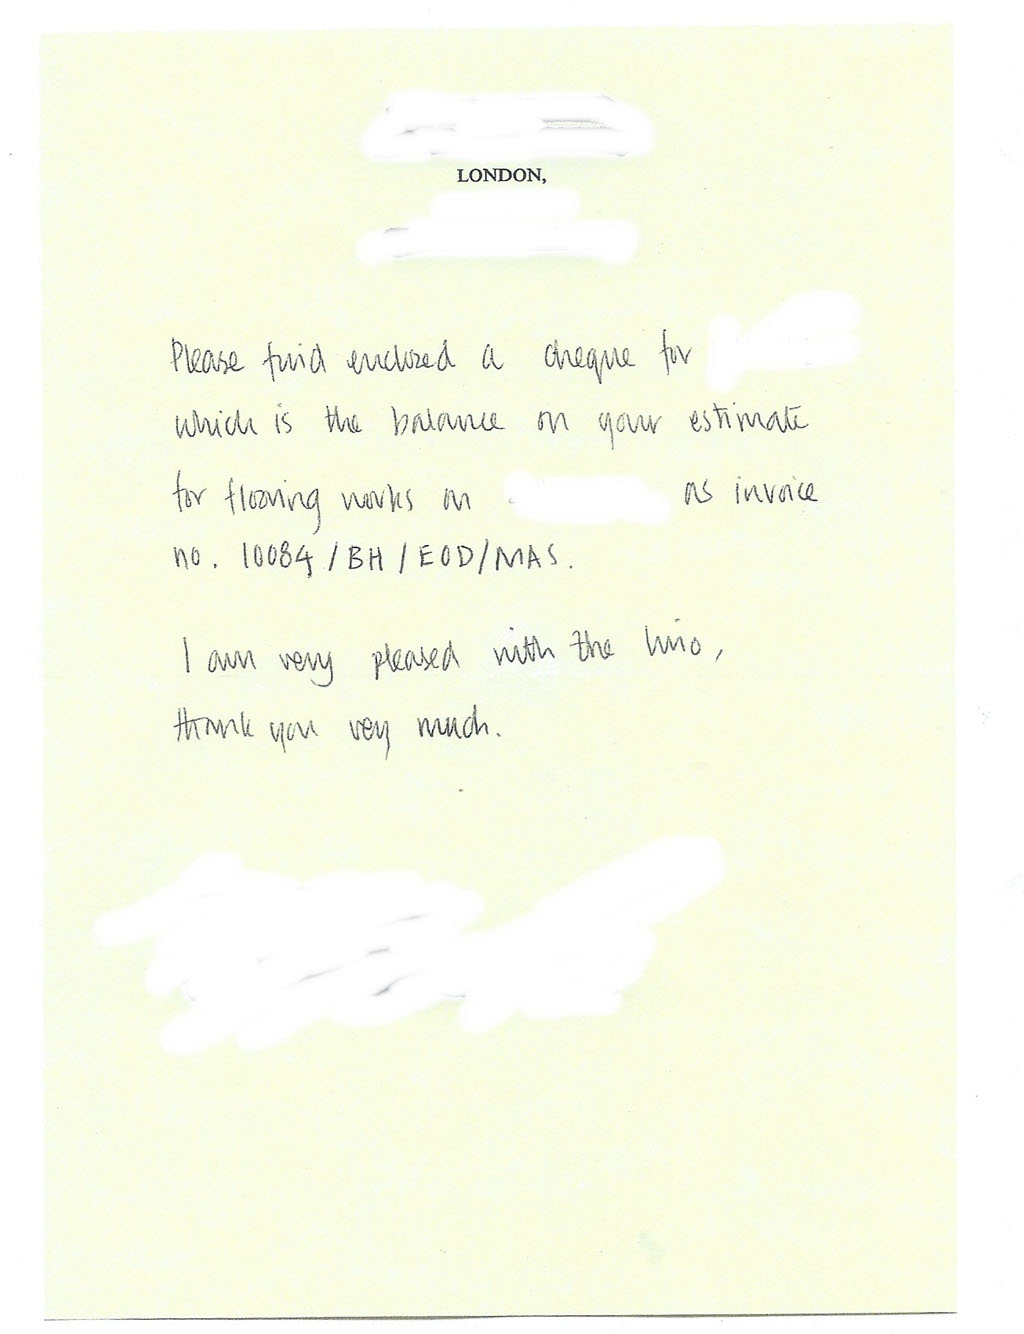 LONDON,
Please find enclosed a cheque for
which is the balance on your estimate
for flooring works on as invoice
no. 10084/BH/EOD/MAS.
I am very pleased with the lino,
thank you very much.